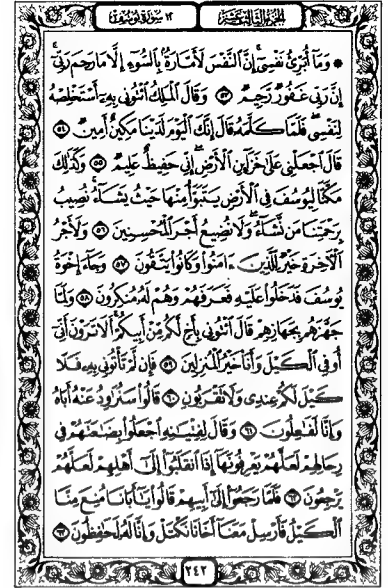 الجزء الثالث عشر ١٢ سورة يوسف
۞ وَمَآ أُبَرِّئُ نَفْسِىٓ إِنَّ ٱلنَّفْسَ لَأَمَّارَةٌۢ بِٱلسُّوٓءِ إِلَّا مَا رَحِمَ رَبِّىٓ
إِنَّ رَبِّى غَفُورٌ رَّحِيمٌ ٥٣ وَقَالَ ٱلْمَلِكُ ٱئْتُونِى بِهِۦٓ أَسْتَخْلِصْهُ
لِنَفْسِى فَلَمَّا كَلَّمَهُۥ قَالَ إِنَّكَ ٱلْيَوْمَ لَدَيْنَا مَكِينٌ أَمِينٌ ٥٤
قَالَ ٱجْعَلْنِى عَلَىٰ خَزَآئِنِ ٱلْأَرْضِ إِنِّى حَفِيظٌ عَلِيمٌ ٥٥ وَكَذَٰلِكَ
مَكَّنَّا لِيُوسُفَ فِى ٱلْأَرْضِ يَتَبَوَّأُ مِنْهَا حَيْثُ يَشَآءُ نُصِيبُ
بِرَحْمَتِنَا مَن نَّشَآءُ وَلَا نُضِيعُ أَجْرَ ٱلْمُحْسِنِينَ ٥٦ وَلَأَجْرُ
ٱلْـَٔاخِرَةِ خَيْرٌ لِّلَّذِينَ ءَامَنُوا۟ وَكَانُوا۟ يَتَّقُونَ ٥٧ وَجَآءَ إِخْوَةُ
يُوسُفَ فَدَخَلُوا۟ عَلَيْهِ فَعَرَفَهُمْ وَهُمْ لَهُۥ مُنكِرُونَ ٥٨ وَلَمَّا
جَهَّزَهُم بِجَهَازِهِمْ قَالَ ٱئْتُونِى بِأَخٍ لَّكُم مِّنْ أَبِيكُمْ أَلَا تَرَوْنَ أَنِّىٓ
أُوفِى ٱلْكَيْلَ وَأَنَا۠ خَيْرُ ٱلْمُنزِلِينَ ٥٩ فَإِن لَّمْ تَأْتُونِى بِهِۦ فَلَا
كَيْلَ لَكُمْ عِندِى وَلَا تَقْرَبُونِ ٦٠ قَالُوا۟ سَنُرَٰوِدُ عَنْهُ أَبَاهُ
وَإِنَّا لَفَٰعِلُونَ ٦١ وَقَالَ لِفِتْيَٰنِهِ ٱجْعَلُوا۟ بِضَٰعَتَهُمْ فِى
رِحَالِهِمْ لَعَلَّهُمْ يَعْرِفُونَهَآ إِذَا ٱنقَلَبُوٓا۟ إِلَىٰٓ أَهْلِهِمْ لَعَلَّهُمْ
يَرْجِعُونَ ٦٢ فَلَمَّا رَجَعُوٓا۟ إِلَىٰٓ أَبِيهِمْ قَالُوا۟ يَٰٓأَبَانَا مُنِعَ مِنَّا
ٱلْكَيْلُ فَأَرْسِلْ مَعَنَآ أَخَانَا نَكْتَلْ وَإِنَّا لَهُۥ لَحَٰفِظُونَ ٦٣
٢٤٢